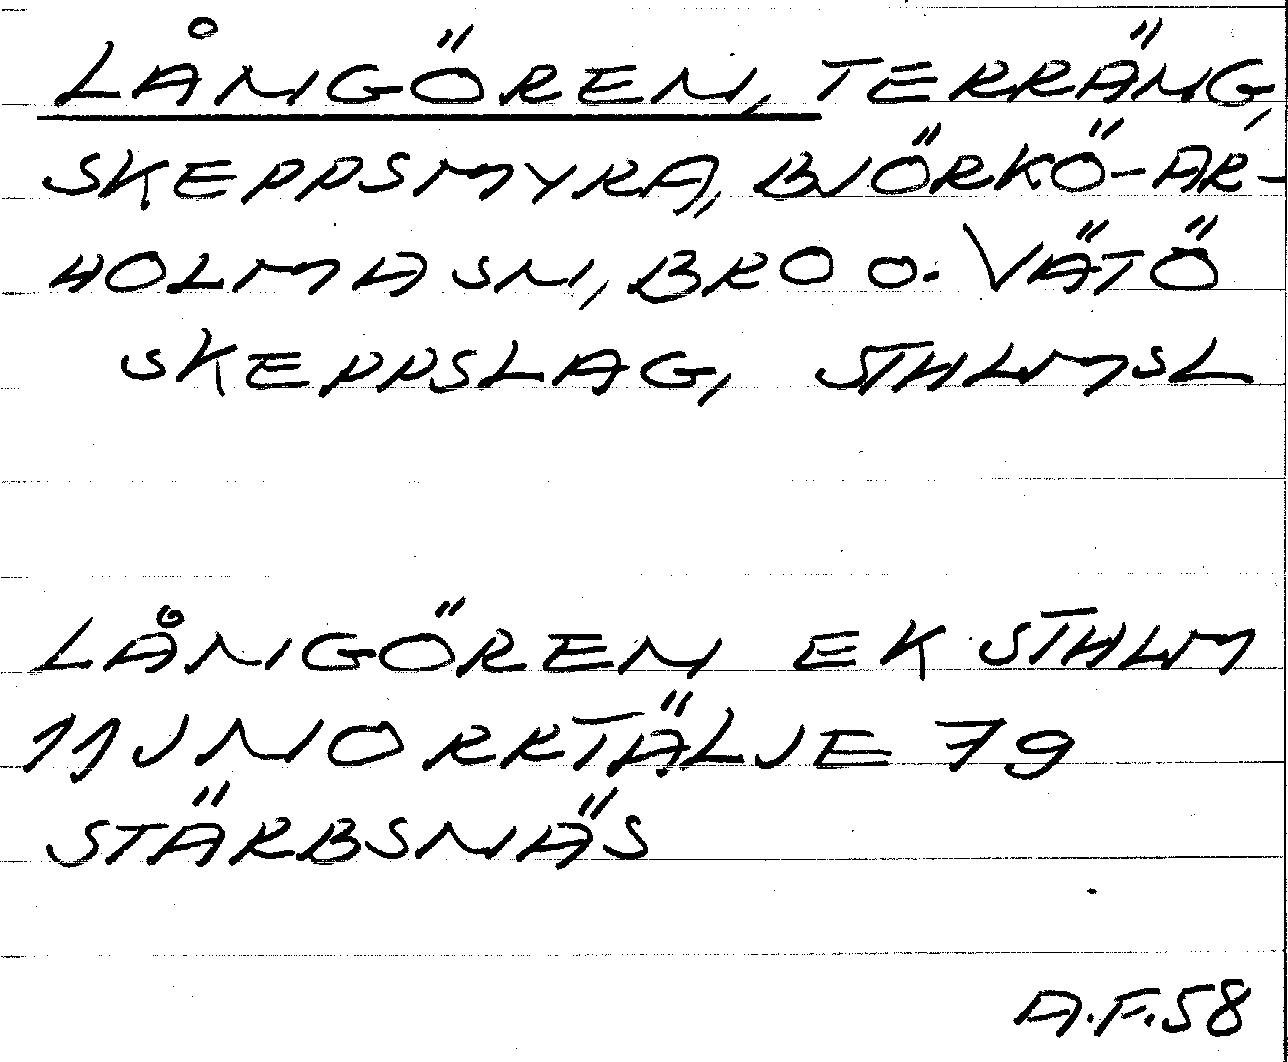 LÅNGÖREN, TERRÄNG,
SKEPPSMYRA, BJÖRKÖ-AR-
HOLMA SN, BRO O. VÄTÖ
SKEPPSLAG, STHLMSL
LÅNGÖREN EK STHLM
11J NORRTÄLJE 79
STÄRBSNÄS
A.F.58